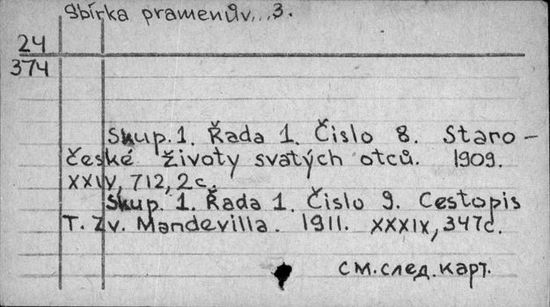 Sbírka pramenův...3.
24
374
Skup.1. Řada 1. Čislo 8. Staro-
české životy svatých otců. 1909.
XXIV, 712, 2 с.
Skup. 1. Řada 1. Čislo 9. Cestopis
T. Zv. Mandevilla. 1911. XXXIX, 347 с.
см.след.карт.